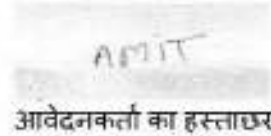 AMIT
आवेदनकर्ता का हस्ताछर